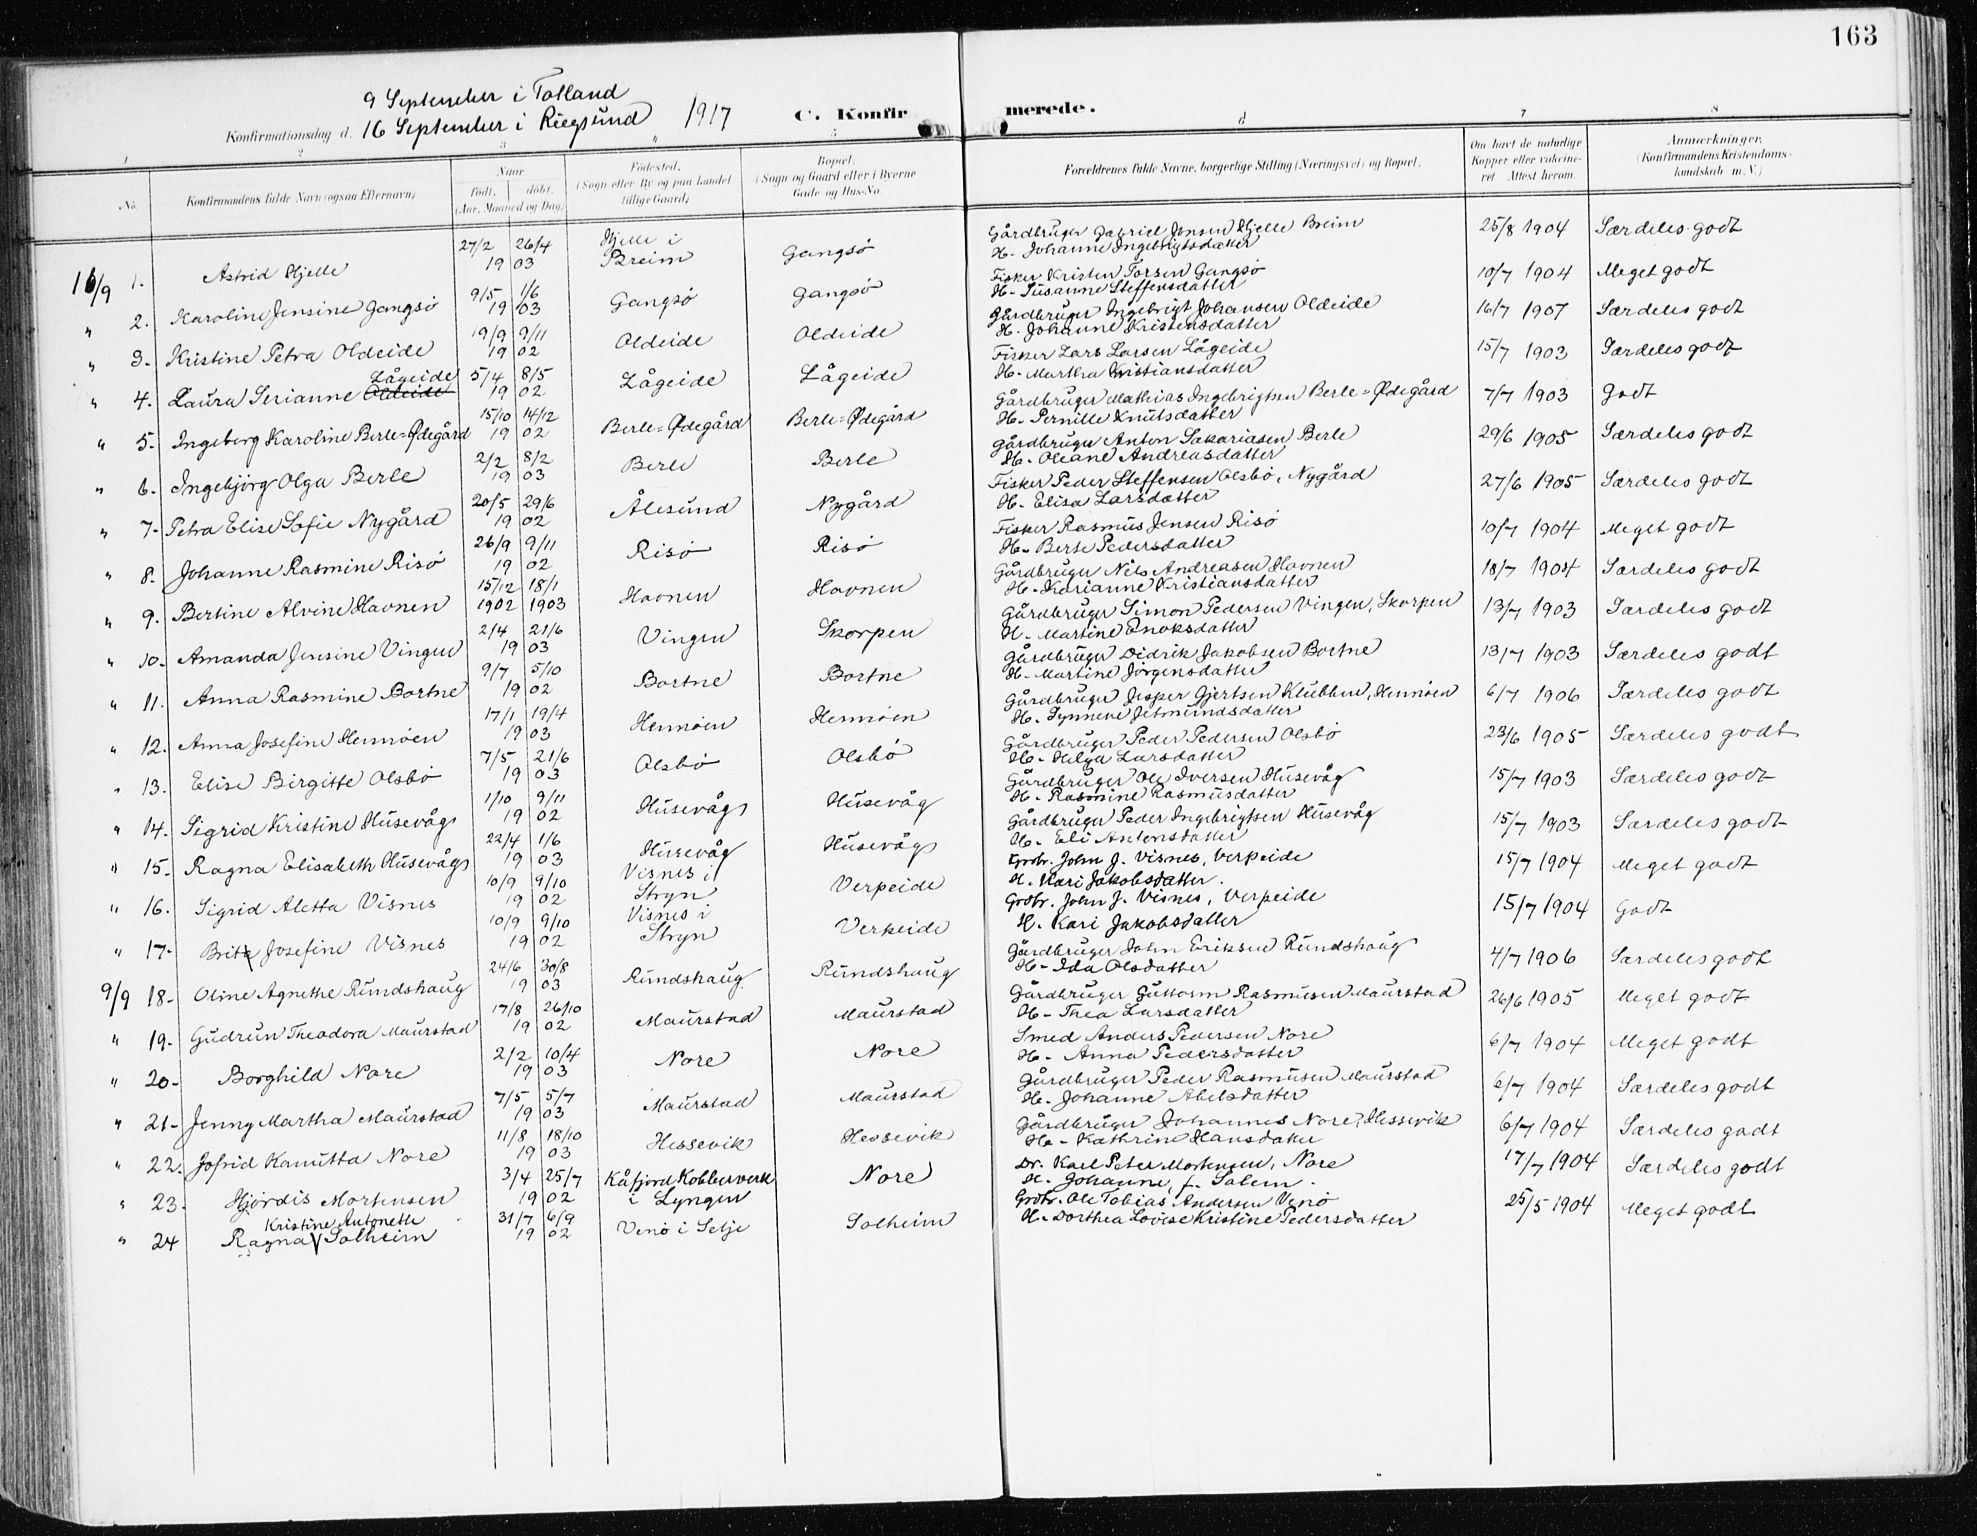 163
9 September i Totland
Konfirmationsdag d. 16 September i Rugsund 1917 C. Konfirmerede.
1 2 3 4 5 6 7 8
No. Konfirmandens fulde Navn (ogsaa Efternavn) Naar født, døbt. (Aar, Maaned og Dag) Fødested. (Sogn eller By og paa Landet tillige Gaard) Bopæl. (Sogn og Gaard eller i Byerne Gade og Hus-No. Forældrenes fulde Navne, borgerlige Stilling (Næringsvei) og Bopæl. Om havt de naturlige Kopper eller vakcineret. Attest herom. Anmærkninger. (Konfirmandens Kristendomskundskab m. V.)
16/9 1. Astrid Hjelle 27/2 26/4 1903 Hjelle i Breim Gangsö Gårdbruger Gabriel Jensen Hjelle Breim 25/8 1904 Særdeles godt
H. Johanne Ingebrigtsdatter
" 2. Karoline Jensine Gangsö 9/5 1/6 1903 Gangsö Gangsö Fisker Kristen Torsen Gangsö 10/7 1904 Meget godt
H. Susanne Steffensdatter
" 3. Kristine Petra Oldeide 19/9 9/11 1902 Oldeide Oldeide Gårdbruger Ingebrigt Johansen Oldeide 16/7 1907 Særdeles godt
H. Johanne Kristensdatter
" 4. Laura Serianne Oldeide Lågeide 5/4 8/5 1902 Lågeide Lågeide Fisker Lars Larsen Lågeide 15/7 1903 Særdeles godt
H. Martha Kristiansdatter
" 5. Ingeborg Karoline Berle=Ødegård 15/10 14/12 1902 Berle=Ødegård Berle=Ødegård Gårdbruger Mathias Ingebrigtsen Berle=Ødegård 7/7 1903 Godt
H. Pernille Knutsdatter
" 6. Ingebjörg Olga Berle 2/2 8/2 1903 Berle Berle Gårdbruger Anton Sakariasen Berle 29/6 1905 Særdeles godt
H. Oleane Andreasdatter
" 7. Petra Elise Sofie Nygård 20/5 29/6 1902 Ålesund Nygård Fisker Peder Steffensen Olsbö, Nygård 27/6 1905 Særdeles godt
H. Elisa Larsdatter
" 8. Johanne Rasmine Risö 26/9 9/11 1902 Risö Risö Fisker Rasmus Jensen Risö 10/7 1904 Meget godt
H. Berte Pedersdatter
" 9. Bertine Alvine Havnen 15/12 1902 18/1 1903 Havnen Havnen Gårdbruger Nils Andreasen Havnen 18/7 1904 Særdeles godt
H. Karianne Kristiansdatter
" 10. Amanda Jensine Vingen 2/4 21/6 1903 Vingen Skorpen Gårdbruger Simon Pedersen Vingen, Skorpen 13/7 1903 Særdeles godt
H. Martine Enoksdatter
" 11. Anna Rasmine Bortne 9/7 5/10 1902 Bortne Bortne Gårdbruger Didrik Jakobsen Bortne 13/7 1903 Særdeles godt
H. Martine Jörgensdatter
" 12. Anna Josefine Hennöen 17/1 19/4 1903 Hennöen Hennöen Gårdbruger Jesper Gjertsen Klubben, Hennöen 6/7 1906 Særdeles godt
H. Synneve Jetmundsdatter
" 13. Elise Birgitte Olsbö 7/5 21/6 1903 Olsbö Olsbö Gårdbruger Peder Pedersen Olsbö 23/6 1905 Særdeles godt
H. Helga Larsdatter
" 14. Sigrid Kristine Husevåg 1/10 9/11 1902 Husevåg Husevåg Gårdbruger Ole Iversen Husevåg 15/7 1903 Særdeles godt
H. Rasmine Rasmusdatter
" 15. Ragna Elisabeth Husevåg 22/4 1/6 1903 Husevåg Husevåg Gårdbruger Peder Ingebrigtsen Husevåg 15/7 1903 Særdeles godt
H. Eli Antonsdatter
" 16. Sigrid Aletta Visnes 10/9 9/10 1902 Visnes i Stryn Verpeide Grdbr. John J. Visnes, Verpeide 15/7 1904 Meget godt
H. Kari Jakobsdatter.
" 17. Brita Josefine Visnes 10/9 9/10 1902 Visnes i Stryn Verpeide Grdbr. John J. Visnes, Verpeide 15/7 1904 Godt
H. Kari Jakobsdatter
9/9 18. Oline Agnethe Rundshaug 24/6 30/8 1903 Rundshaug Rundshaug Gårdbruger John Eriksen Rundshaug 4/7 1906 Særdeles godt
H. Ida Olsdatter
" 19. Gudrun Theodora Maurstad 17/8 26/10 1902 Maurstad Maurstad Gårdbruger Guttorm Rasmusen Maurstad 26/6 1905 Meget godt
H. Thea Larsdatter
" 20. Borghild Nore 2/2 10/4 1903 Nore Nore Smed Anders Pedersen Nore 6/7 1904 Meget godt
H. Anna Pedersdatter
" 21. Jenny Martha Maurstad 7/5 5/7 1903 Maurstad Maurstad Gårdbruger Peder Rasmusen Maurstad 6/7 1904 Særdeles godt
H. Johanne Abelsdatter
" 22. Jofrid Kanutta Nore 11/8 18/10 1903 Hessevik Hessevik Gårdbruger Johannes Nore, Hessevik 6/7 1904 Særdeles godt
H. Kathrine Hansdatter
" 23. Hjördis Mortensen 3/4 25/7 1902 Kåfjord Kobberverk i Lyngen Nore Dr. Karl Peter Mortensen, Nore 17/7 1904 Særdeles godt
H. Johanne, f. Salem.
" 24 Ragna Kristine Antonette Solheim 31/7 6/9 1902 Venö i Selje Solheim Grdbr. Ole Tobias Andersen Venö 25/5 1904 Meget godt
H. Dorthea Lovise Kristine Pedersdatter